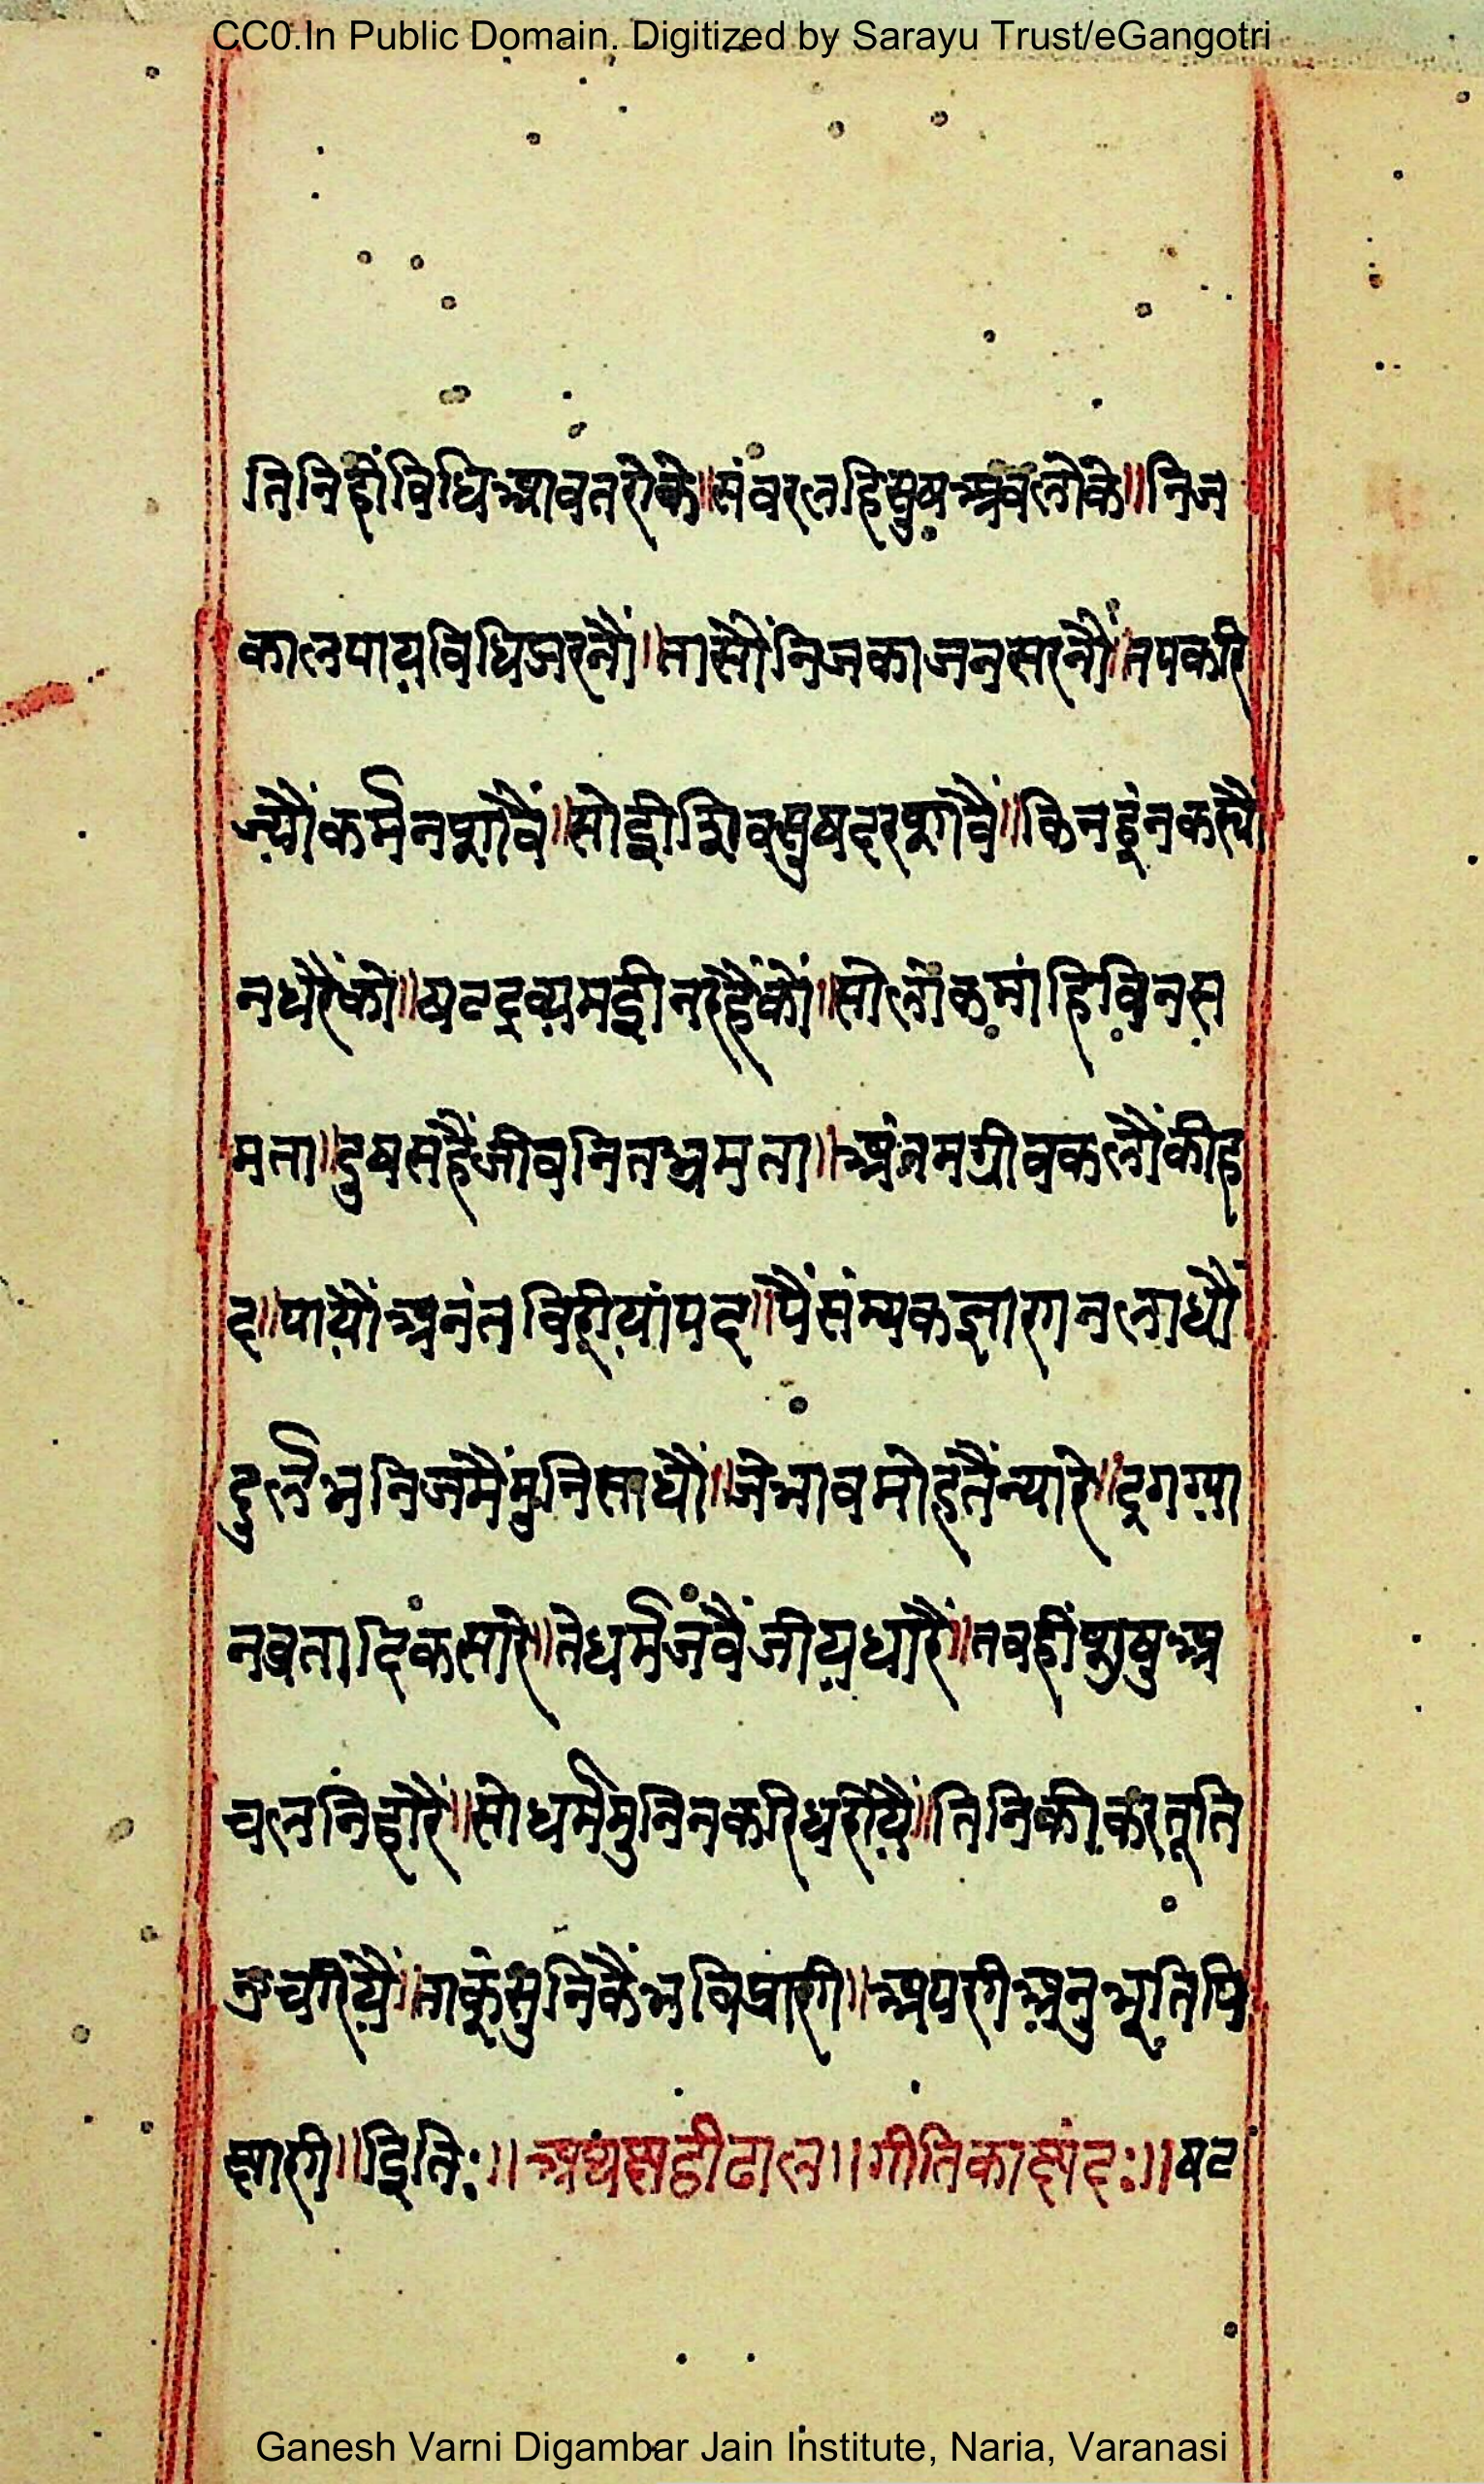 CC0.In Public Domain. Digitized by Sarayu Trust/eGangotri
तिनिहीं विधि आवत रोके ॥ संवर लहि सुष अवलोके ॥ निज
काल पाय विधि झरनौं ॥ तासौं निज काज न सरनौं ॥ तप करि
ज्यौं कर्म न षपावैं ॥ सोई शिव सुष दरषावैं ॥ किनहूं न कर्यौ
न धरैं को ॥ षट द्रव्य मई न रहैं कों ॥ सो लोक मांहि विन स
मता ॥ दुष सहैं जीव नित भ्रमता ॥ अंतम ग्रीवकलौं की ह
द ॥ पायौं अनंत विरीयां पद ॥ पैं संम्यक ज्ञांन न लाधौं
दुर्लभ निज मैं मुनि साधौं ॥ जे भाव मोह तैं न्यारे ॥ द्रग ग्या
न व्रतादिक सारे ॥ ते धर्म जंवैं जीय धारैं ॥ तवहीं सुष अ
चल निंहारैं ॥ सो धर्म मुनिन करि धरीयैं ॥ तिनिकी करतूति
उचरीयैं ॥ ताकूं सुनिकैं भवि प्रानी ॥ अपनी अनुभूति पि
छानी ॥ इति: ॥ अथ छठी ढाल ॥ गीतिका छंद: ॥ षट
Ganesh Varni Digambar Jain Institute, Naria, Varanasi